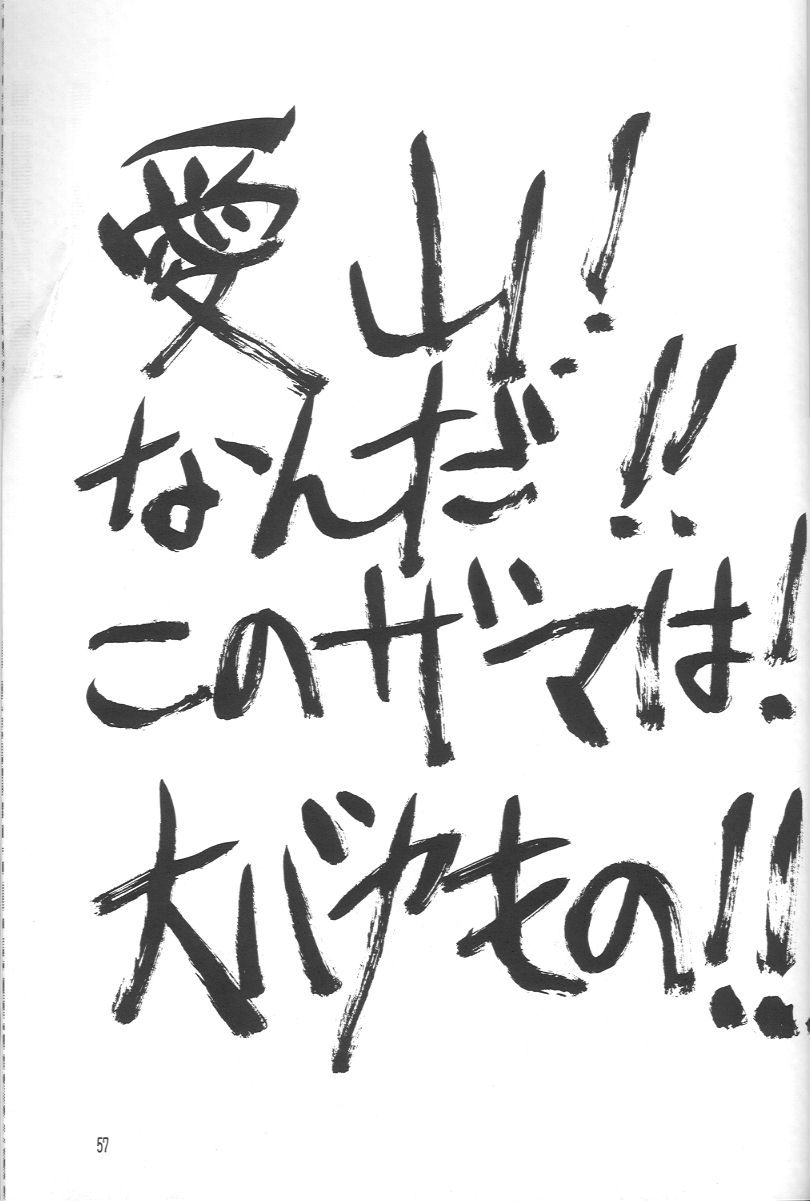 愛山!
なんだ!!
このザマは!
大バカもの!!
57